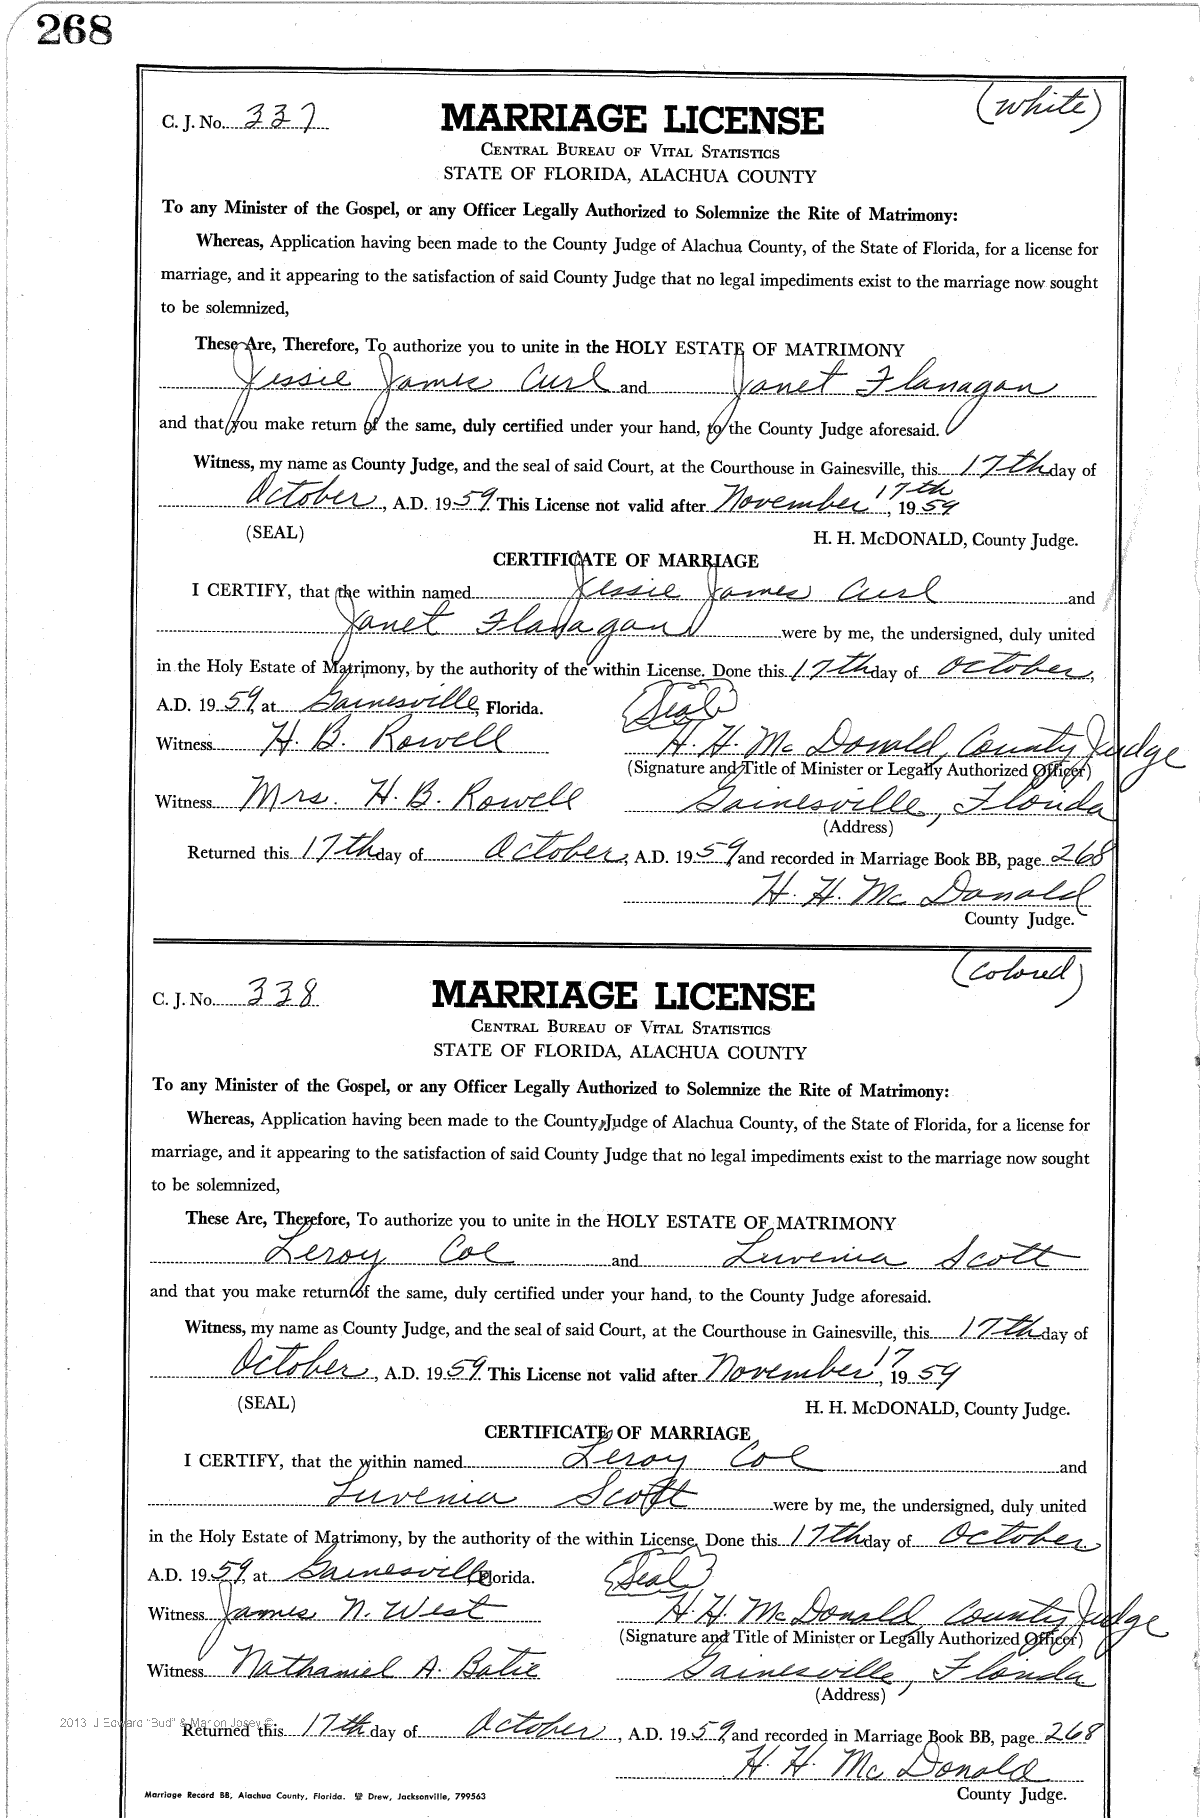 268
C. J. No. 337
(white)
MARRIAGE LICENSE
CENTRAL BUREAU OF VITAL STATISTICS
STATE OF FLORIDA, ALACHUA COUNTY
To any Minister of the Gospel, or any Officer Legally Authorized to Solemnize the Rite of Matrimony:
Whereas, Application having been made to the County Judge of Alachua County, of the State of Florida, for a license for
marriage, and it appearing to the satisfaction of said County Judge that no legal impediments exist to the marriage now sought
to be solemnized,
These Are, Therefore, To authorize you to unite in the HOLY ESTATE OF MATRIMONY
Jessie James Curl and Janet Flanagan
and that you make return of the same, duly certified under your hand, to the County Judge aforesaid.
Witness, my name as County Judge, and the seal of said Court, at the Courthouse in Gainesville, this 17th day of
October, A.D. 1959. This License not valid after November 17th, 1959
(SEAL) H. H. McDONALD, County Judge.
CERTIFICATE OF MARRIAGE
I CERTIFY, that the within named Jessie James Curl and
Janet Flanagan were by me, the undersigned, duly united
in the Holy Estate of Matrimony, by the authority of the within License. Done this 17th day of October,
A.D. 1959, at Gainesville, Florida. (Seal)
Witness H. B. Rowell H. H. McDonald, County Judge
(Signature and Title of Minister or Legally Authorized Officer)
Witness Mrs. H. B. Rowell Gainesville, Florida
(Address)
Returned this 17th day of October, A.D. 1959, and recorded in Marriage Book BB, page 268
H. H. McDonald
County Judge.
(colored)
C. J. No. 338
MARRIAGE LICENSE
CENTRAL BUREAU OF VITAL STATISTICS
STATE OF FLORIDA, ALACHUA COUNTY
To any Minister of the Gospel, or any Officer Legally Authorized to Solemnize the Rite of Matrimony:
Whereas, Application having been made to the County Judge of Alachua County, of the State of Florida, for a license for
marriage, and it appearing to the satisfaction of said County Judge that no legal impediments exist to the marriage now sought
to be solemnized,
These Are, Therefore, To authorize you to unite in the HOLY ESTATE OF MATRIMONY
Leroy Coe and Luvenia Scott
and that you make return of the same, duly certified under your hand, to the County Judge aforesaid.
Witness, my name as County Judge, and the seal of said Court, at the Courthouse in Gainesville, this 17th day of
October, A.D. 1959. This License not valid after November 17, 1959
(SEAL) H. H. McDONALD, County Judge.
CERTIFICATE OF MARRIAGE
I CERTIFY, that the within named Leroy Coe and
Luvenia Scott were by me, the undersigned, duly united
in the Holy Estate of Matrimony, by the authority of the within License. Done this 17th day of October
A.D. 1959, at Gainesville, Florida. (Seal)
Witness James N. West H. H. McDonald, County Judge
(Signature and Title of Minister or Legally Authorized Officer)
Witness Nathaniel A. Batie Gainesville, Florida
(Address)
2013 J Edward "Bud" & Marion Josey ©
Returned this 17th day of October, A.D. 1959, and recorded in Marriage Book BB, page 268
H. H. McDonald
County Judge.
Marriage Record BB, Alachua County, Florida. Drew, Jacksonville, 799563